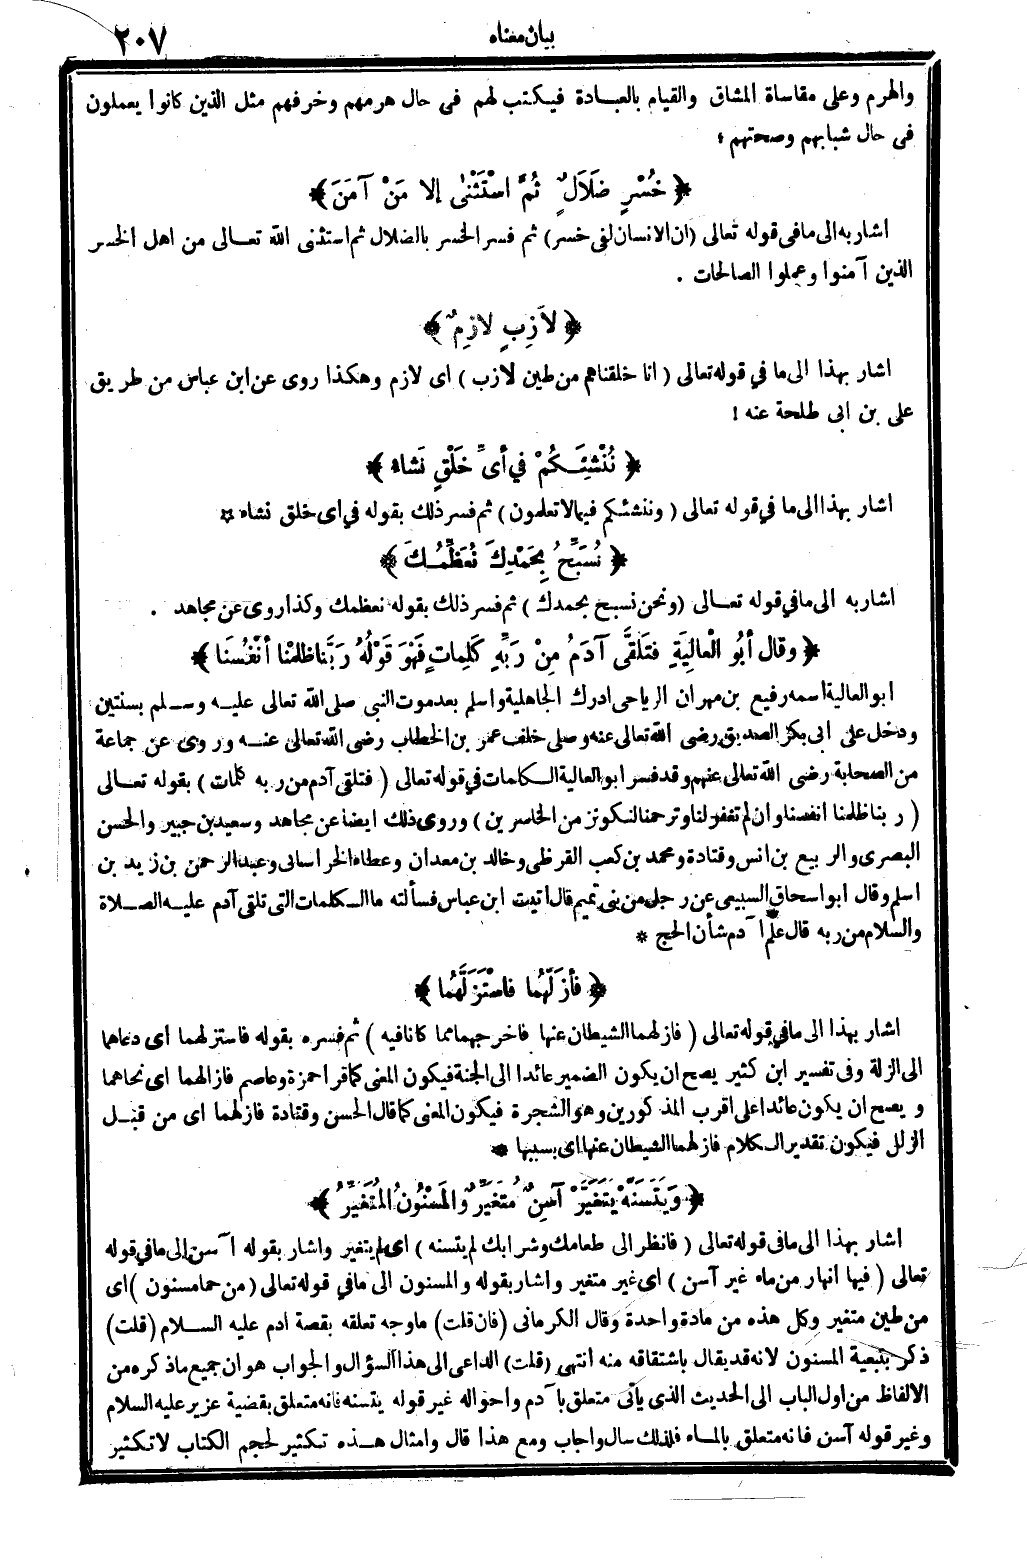 بيان معناه
٢٠٧
والهرم وعلى مقاساة المشاق والقيام بالعبادة فيكتب لهم فى حال هرمهم وخرفهم مثل الذين كانوا يعملون
فى حال شبابهم وصحتهم ؛
﴿ خُسْرٍ ضَلَالٌ ثُمَّ اسْتَثْنٰى إلا مَنْ آمَنَ ﴾
اشار به الى ما فى قوله تعالى (ان الانسان لفى خسر) ثم فسر الخسر بالضلال ثم استثنى الله تعالى من اهل الخسر
الذين آمنوا وعملوا الصالحات .
﴿ لاَزِبٍ لازِمٌ ﴾
اشار بهذا الى ما في قوله تعالى ( انا خلقناهم من طين لازب ) اى لازم وهكذا روى عن ابن عباس من طريق
على بن ابى طلحة عنه !
﴿ نُنْشِئَكُمْ في أىِّ خَلْقٍ نَشاء ﴾
اشار بهذا الى ما في قوله تعالى ( وننشئكم فيما لا تعلمون ) ثم فسر ذلك بقوله في اى خلق نشاء ☆
﴿ نُسَبِّحُ بِحَمْدِكَ نُعَظِّمُكَ ﴾
اشار به الى ما في قوله تعالى (ونحن نسبح بحمدك ) ثم فسر ذلك بقوله نعظمك وكذا روى عن مجاهد .
﴿ وقال أبُو الْعالِيَةِ فتَلقَّى آدَمُ مِنْ رَبِّهِ كَلِماتٍ فَهْوَ قَوْلُهُ رَبَّنا ظلَمْنا أنْفُسنَا ﴾
ابو العالية اسمه رفيع بن مهران الرياحى ادرك الجاهلية واسلم بعد موت النبي صلى الله تعالى عليه وسلم بسنتين
ودخل على ابى بكر الصديق رضى الله تعالى عنه وصلى خلف عمر بن الخطاب رضى الله تعالى عنه وروى عن جماعة
من الصحابة رضى الله تعالى عنهم وقد فسر ابو العالية الكلمات في قوله تعالى ( فتلقى آدم من ربه كلمات ) بقوله تعالى
( ربنا ظلمنا انفسنا وان لم تغفر لنا وترحمنا لنكونن من الخاسرين ) وروى ذلك ايضا عن مجاهد وسعيد بن جبير والحسن
البصرى والربيع بن انس وقتادة ومحمد بن كعب القرظى وخالد بن معدان وعطاء الخراسانى وعبد الرحمن بن زيد بن
اسلم وقال ابو اسحاق السبيعى عن رجل من بنى تميم قال أتيت ابن عباس فسألته ما الكلمات التى تلقى آدم عليه الصلاة
والسلام من ربه قال علم آدم شأن الحج *
﴿ فأزَلَّهُما فاسْتَزَلَّهُما ﴾
اشار بهذا الى ما في قوله تعالى ( فازلهما الشيطان عنها فاخرجهما مما كانا فيه ) ثم فسره بقوله فاستزلهما اى دعاهما
الى الزلة وفى تفسير ابن كثير يصح ان يكون الضمير عائدا الى الجنة فيكون المعنى كما قرأ حمزة وعاصم فازالهما اى نحاهما
ويصح ان يكون عائدا على اقرب المذكورين وهو الشجرة فيكون المعنى كما قال الحسن وقتادة فازلهما اى من قبل
الزلل فيكون تقدير الكلام فازلهما الشيطان عنها اى بسببها *
﴿ وَيَتَسَنَّهْ يَتَغَيَّرْ آسِنٌ مُتَغَيِّرٌ والمَسْنُونُ المُتَغَيِّرُ ﴾
اشار بهذا الى ما فى قوله تعالى ( فانظر الى طعامك وشرابك لم يتسنه ) اى لم يتغير واشار بقوله آسن الى ما في قوله
تعالى ( فيها انهار من ماء غير آسن ) اى غير متغير واشار بقوله والمسنون الى ما في قوله تعالى ( من حمإ مسنون ) اى
من طين متغير وكل هذه من مادة واحدة وقال الكرمانى (فان قلت) ما وجه تعلقه بقصة ادم عليه السلام (قلت)
ذكر بتبعية المسنون لانه قد يقال باشتقاقه منه انتهى (قلت) الداعى الى هذا السؤال والجواب هو ان جميع ما ذكره من
الالفاظ من اول الباب الى الحديث الذى يأتى متعلق بآدم واحواله غير قوله يتسنه فانه متعلق بقضية عزير عليه السلام
وغير قوله آسن فانه متعلق بالماء فلذلك سال واجاب ومع هذا قال وامثال هذه تكثير لحجم الكتاب لا تكثير